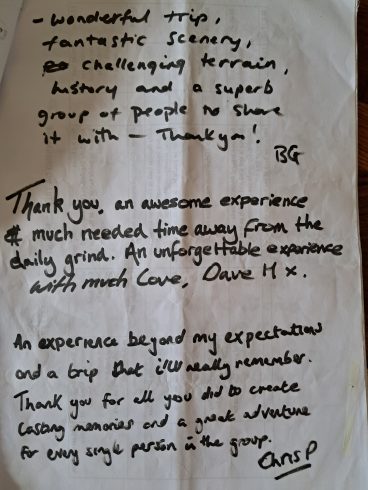 - wonderful trip,
fantastic scenery,
challenging terrain,
history and a superb
group of people to share
it with - Thankyou!
BG
Thank you, an awesome experience
& much needed time away from the
daily grind. An unforgettable experience
with much Love, Dave H x.
An experience beyond my expectations
and a trip that i'll really remember.
Thank you for all you did to create
lasting memories and a great adventure
for every single person in the group.
Chris P